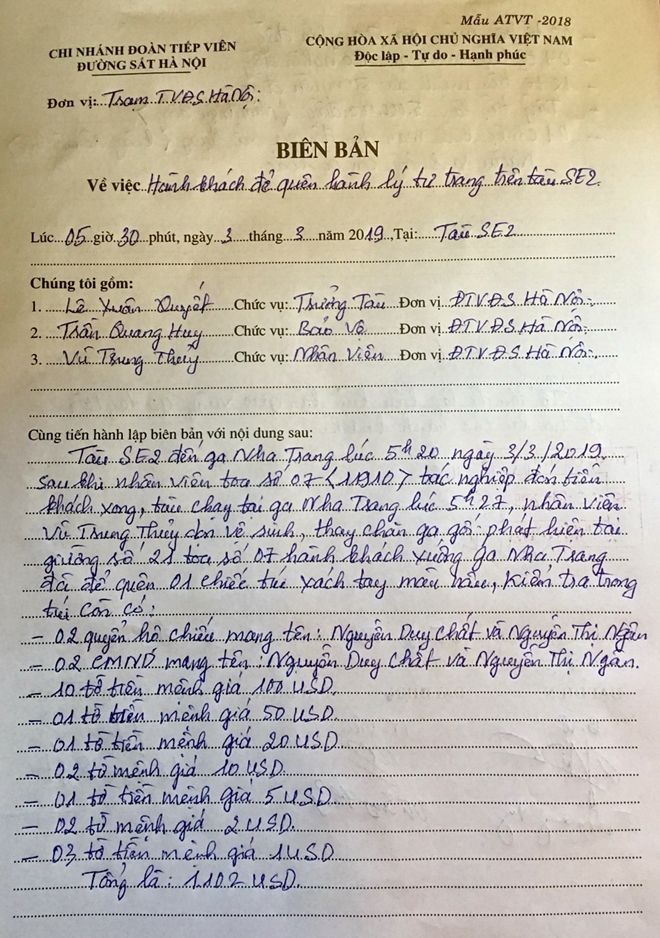 Mẫu ATVT -2018
CHI NHÁNH ĐOÀN TIẾP VIÊN
ĐƯỜNG SẮT HÀ NỘI
CỘNG HÒA XÃ HỘI CHỦ NGHĨA VIỆT NAM
Độc lập - Tự do - Hạnh phúc
Đơn vị: Trạm T.V.Đ.S Hà Nội:
BIÊN BẢN
Về việc Hành khách để quên hành lý tư trang trên tàu SE2.
Lúc 05 giờ 30 phút, ngày 3 tháng 3 năm 2019, Tại: Tàu SE2
Chúng tôi gồm:
1. Lê Xuân Quyết Chức vụ: Trưởng Tàu Đơn vị ĐTVĐS Hà Nội
2. Trần Quang Huy Chức vụ: Bảo Vệ Đơn vị ĐTVĐS Hà Nội
3. Vũ Trung Thủy Chức vụ: Nhân Viên Đơn vị ĐTVĐS Hà Nội
Cùng tiến hành lập biên bản với nội dung sau:
Tàu SE2 đến ga Nha Trang lúc 5h20 ngày 3/3/2019.
sau khi nhân viên toa số 07 <11910> tác nghiệp đón tiễn
khách xong, tàu chạy tại ga Nha Trang lúc 5h27, nhân viên
Vũ Trung Thủy dọn vệ sinh, thay chăn ga gối phát hiện tại
giường số 21 toa số 07 hành khách xuống ga Nha Trang
đã để quên 01 chiếc túi xách tay màu nâu, Kiểm tra trong
túi còn có:
- 02 quyển hộ chiếu mang tên: Nguyễn Duy Chất và Nguyễn Thị Ngân
- 02 CMND mang tên: Nguyễn Duy Chất và Nguyễn Thị Ngân.
- 10 tờ tiền mệnh giá 100 USD.
- 01 tờ tiền mệnh giá 50 USD.
- 01 tờ tiền mệnh giá 20 USD
- 02 tờ mệnh giá 10 USD.
- 01 tờ tiền mệnh giá 5 USD.
- 02 tờ mệnh giá 2 USD.
- 03 tờ tiền mệnh giá 1 USD
Tổng là: 1102 USD.